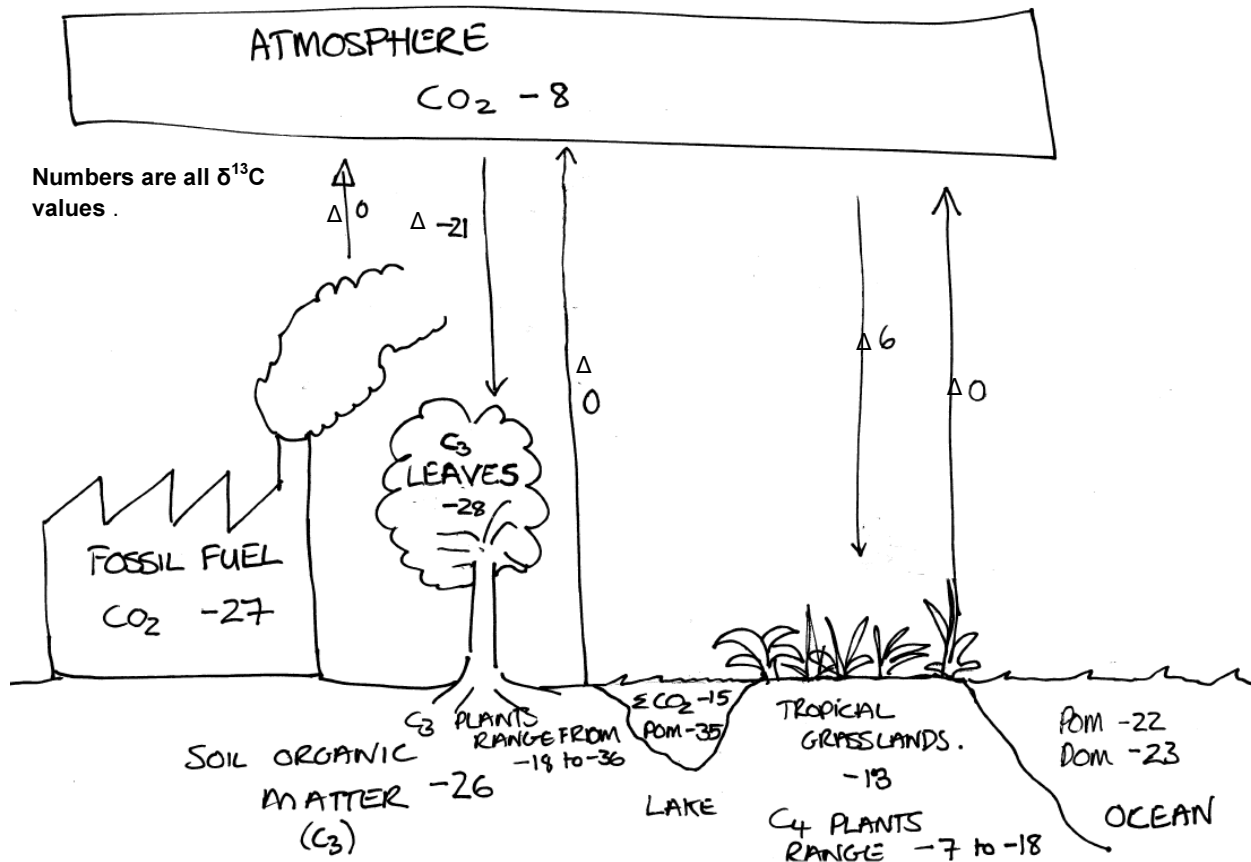 ATMOSPHERE
CO₂ -8
Numbers are all δ¹³C
values .
Δ 0
Δ -21
Δ
0
Δ 6
Δ 0
C₃
LEAVES
-28
FOSSIL FUEL
CO₂ -27
C₃ PLANTS
RANGE FROM
-18 to -36
SOIL ORGANIC
MATTER -26
(C₃)
ΣCO₂ -15
POM -35
LAKE
TROPICAL
GRASSLANDS.
-13
C₄ PLANTS
RANGE -7 to -18
POM -22
DOM -23
OCEAN